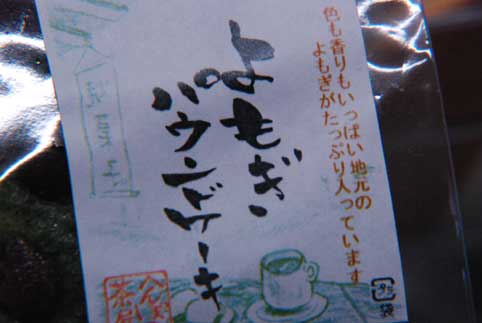 色も香りもいっぱい地元の
よもぎがたっぷり入っています
よもぎ
パウンドケーキ
プラ
袋